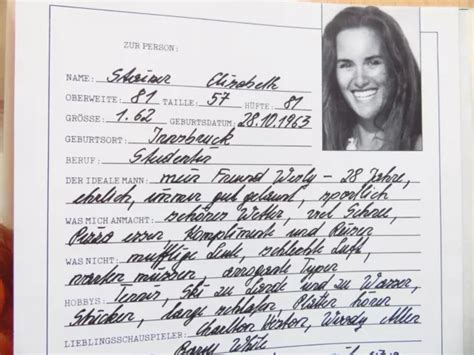 ZUR PERSON:
NAME: Steiner Elisabeth
OBERWEITE: 81 TAILLE: 57 HÜFTE: 81
GRÖSSE: 1.62 GEBURTSDATUM: 28.10.1963
GEBURTSORT: Innsbruck
BERUF: Studentin
DER IDEALE MANN: mein Freund – 28 Jahre,
ehrlich, immer gut gelaunt, sportlich
WAS MICH ANMACHT: schönes Wetter, viel Schnee,
Pizza essen, Kompliment und
WAS NICHT: mufflige Leute, schlechte Luft,
warten müssen, arrogante Typen
HOBBYS: Tennis, Ski zu Lande und zu Wasser,
lange schlafen, Platten hören
LIEBLINGSSCHAUSPIELER: Charlton Heston, Woody Allen
Barry White